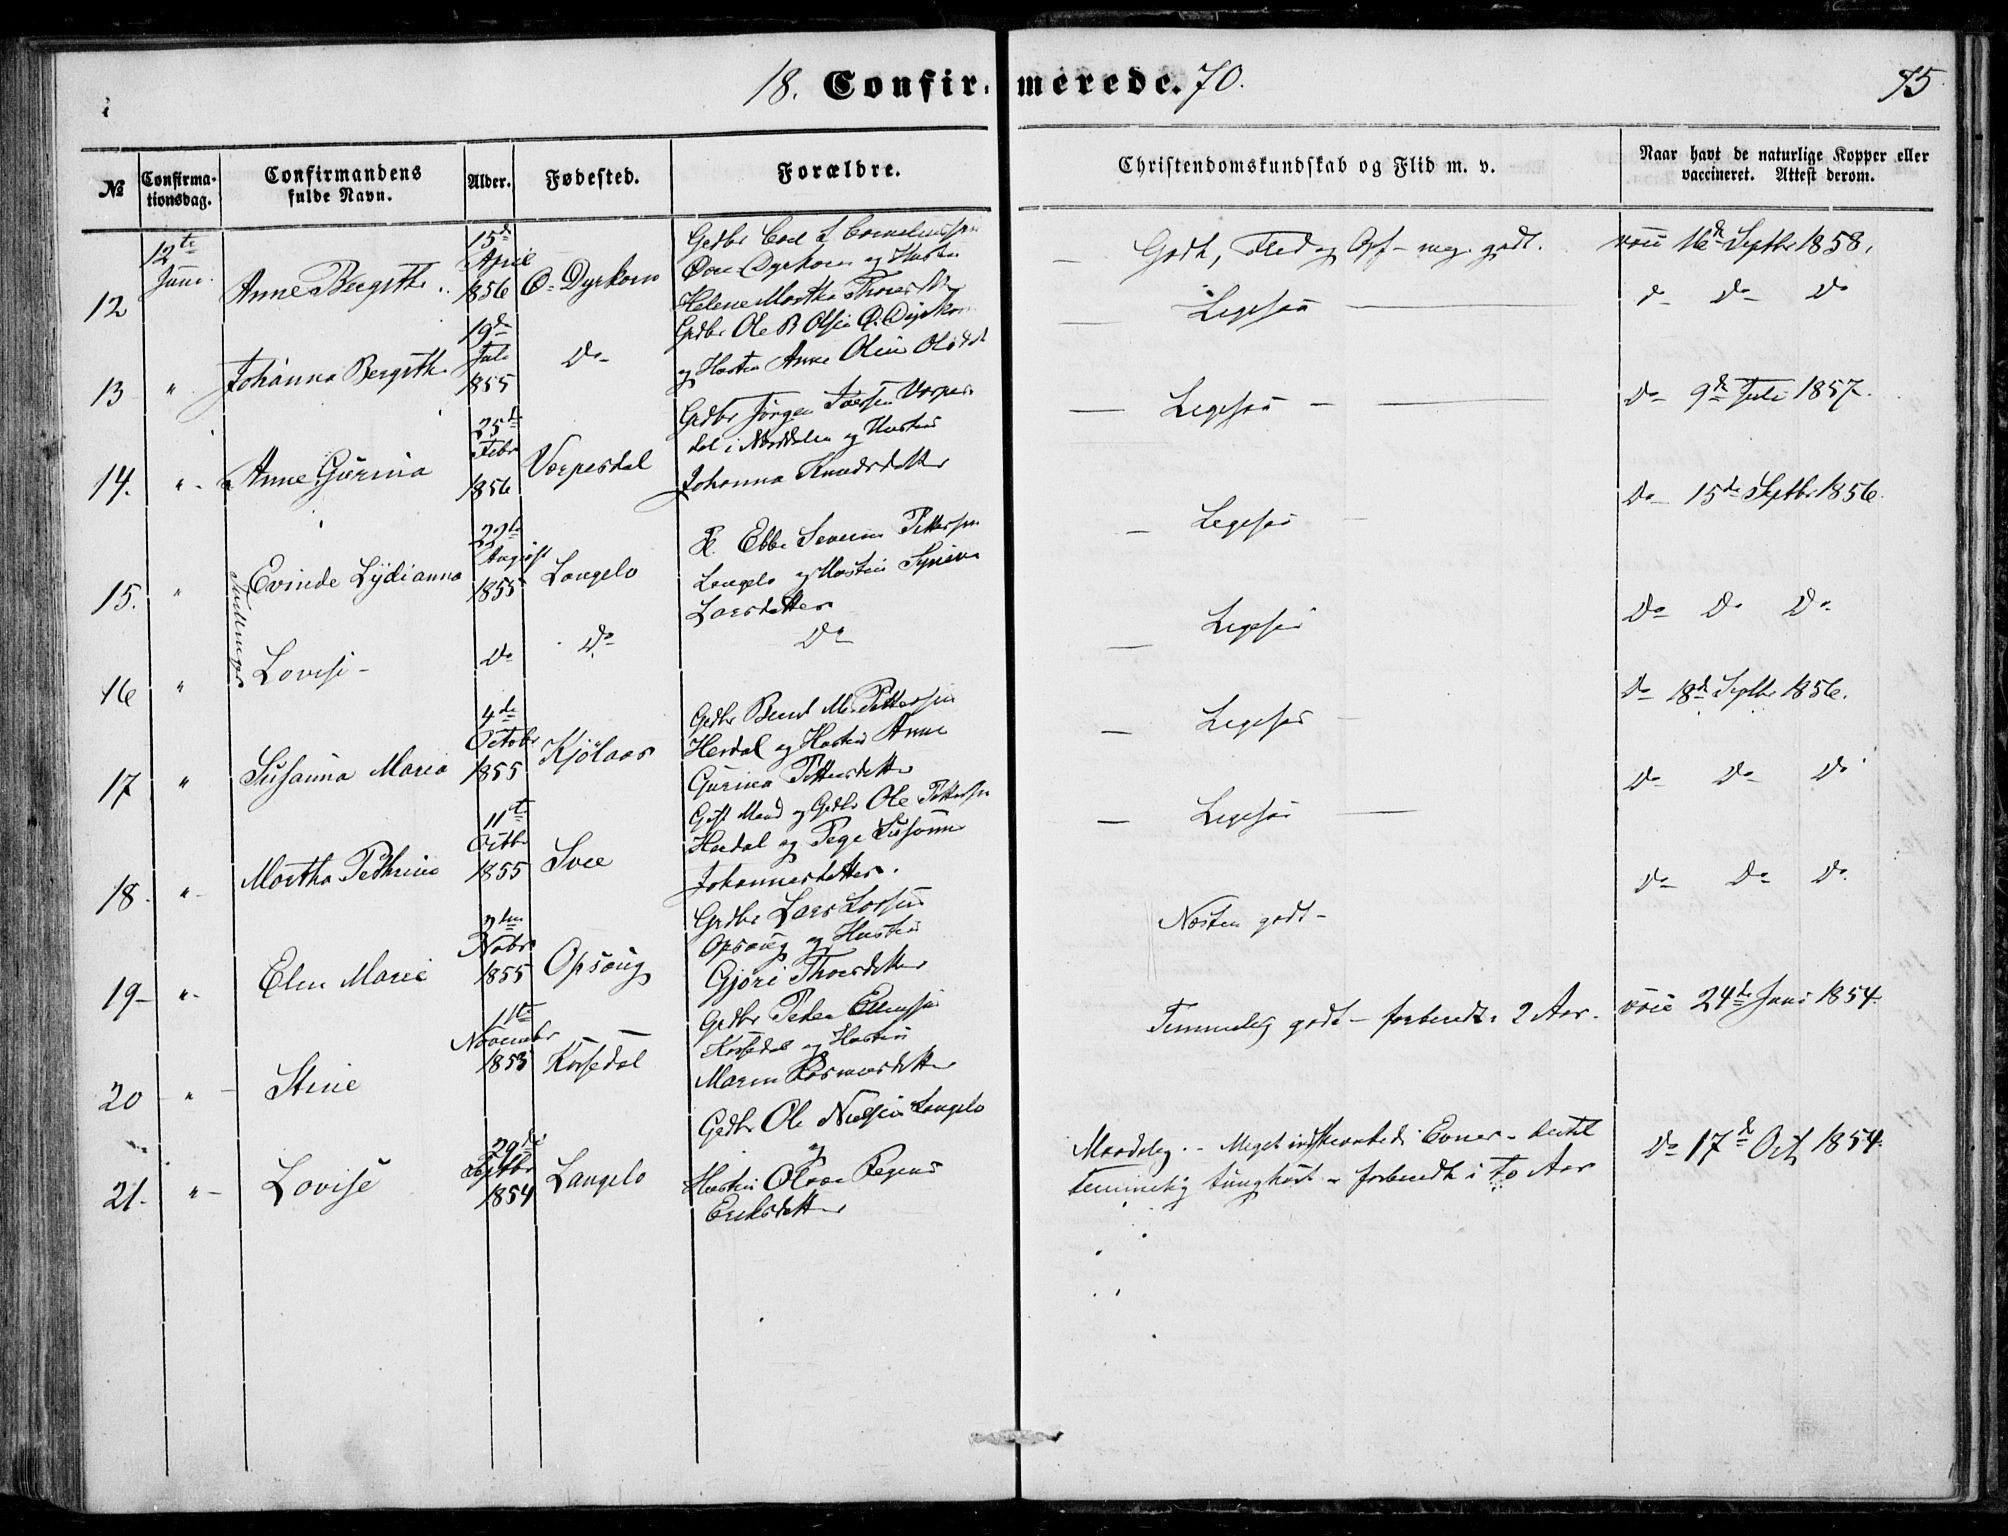 18. Confirmerede. 70.
75
№
Confirmationsdag.
Confirmandens fulde Navn.
Alder.
Fødested.
Forældre.
Christendomskundskab og Flid m. v.
Naar havt de naturlige Kopper eller vaccineret. Attest derom.
12
12te Juni
Anne Bergithe
15de April 1856
Ø. Dyrkorn
Gedbr Carl L Corneliussen
Øvre Dyrkorn og Hustru
Helene Martha
Godt, Flid og Opf - meg. godt.
vaci 16de Septbr 1858.
13
"
Johanna Bergithe
19de Juli 1855
Do
Grdbr Ole B Olsen Ø. Dyrkorn
og Hustru Anne Oline
Ligesaa
do Do Do
14.
"
Anne Gurina
25de Febr 1856
Verpesdal
Gedbr Jørgen Iversen Verpes-
dal i Norddalen og Hustru
Johanna Knudsdatter
Ligesaa
Do 9de Juli 1857.
15.
"
Evinde Lydianna
22de August 1855
Langelo
Ebbe Severin Pettersen
Langelo og Hustru
Larsdatter
Ligesaa
Do 15de Septbr 1856.
Tvillinger
16
"
Lovise
Do
Do
Do
Ligesaa
Do Do Do
17
"
Susanna Maria
4de Octobr 1855
Kjølaas
Gedbr Bernt M. Pettersen
Herdal og Hustru Anne
Gurina Pettersdatter
Ligesaa
Do 18de Septbr 1856.
18.
"
Martha Pethrine
11te Octbr 1855
Svee
Gift Mand og Gedbr Ole Pettersen
Herdal og Pige Susanne
Johannesdatter.
Ligesaa
Do Do Do
19
"
Elen Marie
Nobr 1855
Opsaug
Gedbr Lars Larsen
Opsaug og Hustru
Gjøri Thoresdatter
Næsten godt
Do Do Do
20
"
Stine
11te November 1853
Korsedal
Gedbr Peder
Korsedal og Hustru
Maren Rasmusdatter
Temmelig godt - forberedt 2 Aar.
vaci 24de Juni 1854
21.
"
Lovise
29de Septbr 1854
Langelo
Gedbr Ole Nielsen Langelo
og
Hustru
Eriksdatter
Maadelig. - Meget indskrænkede Evner - dertil
Temmelig tunghørt - forberedt i to Aar
Do 17de Oct 1854